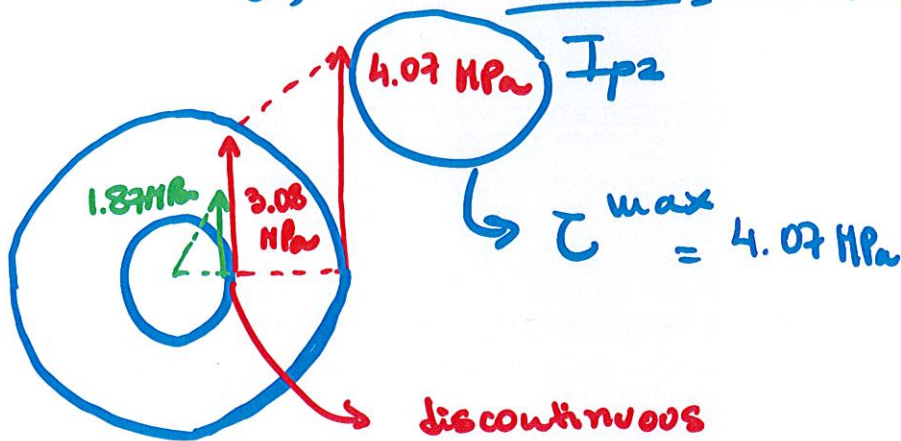 4.07 MPa Ip2
1.87MPa 3.08
MPa
τ max = 4.07 MPa
discontinuous